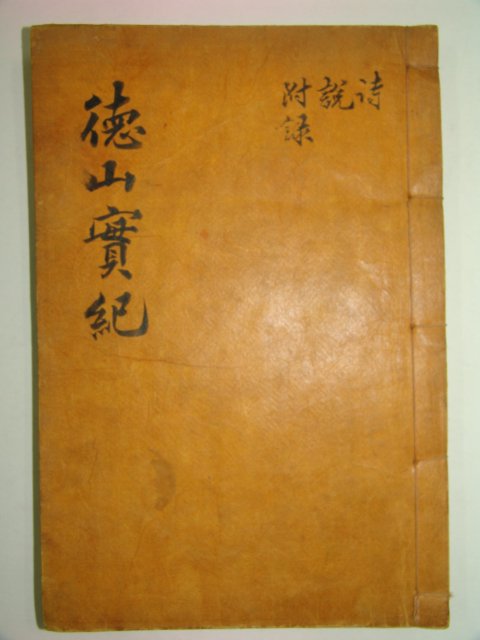 德山實紀
詩
說
附录